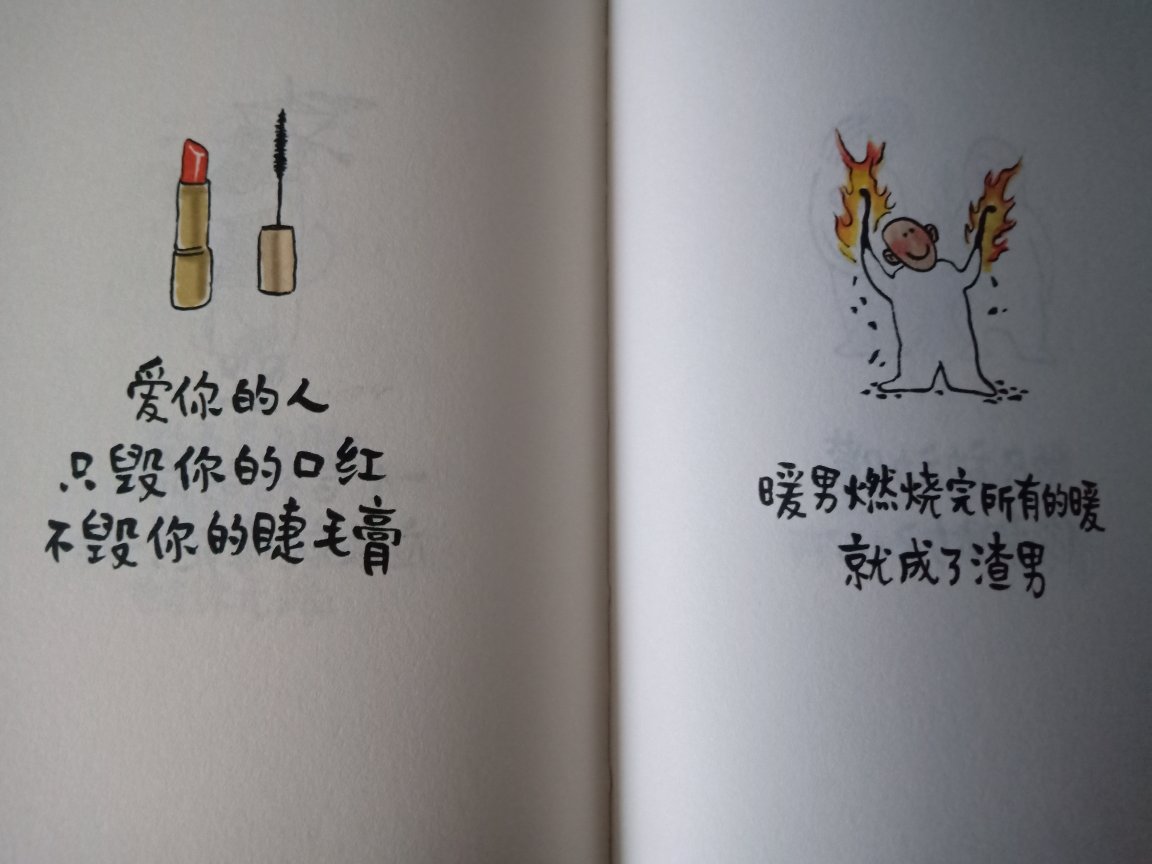 爱你的人
只毁你的口红
不毁你的睫毛膏
暖男燃烧完所有的暖
就成了渣男